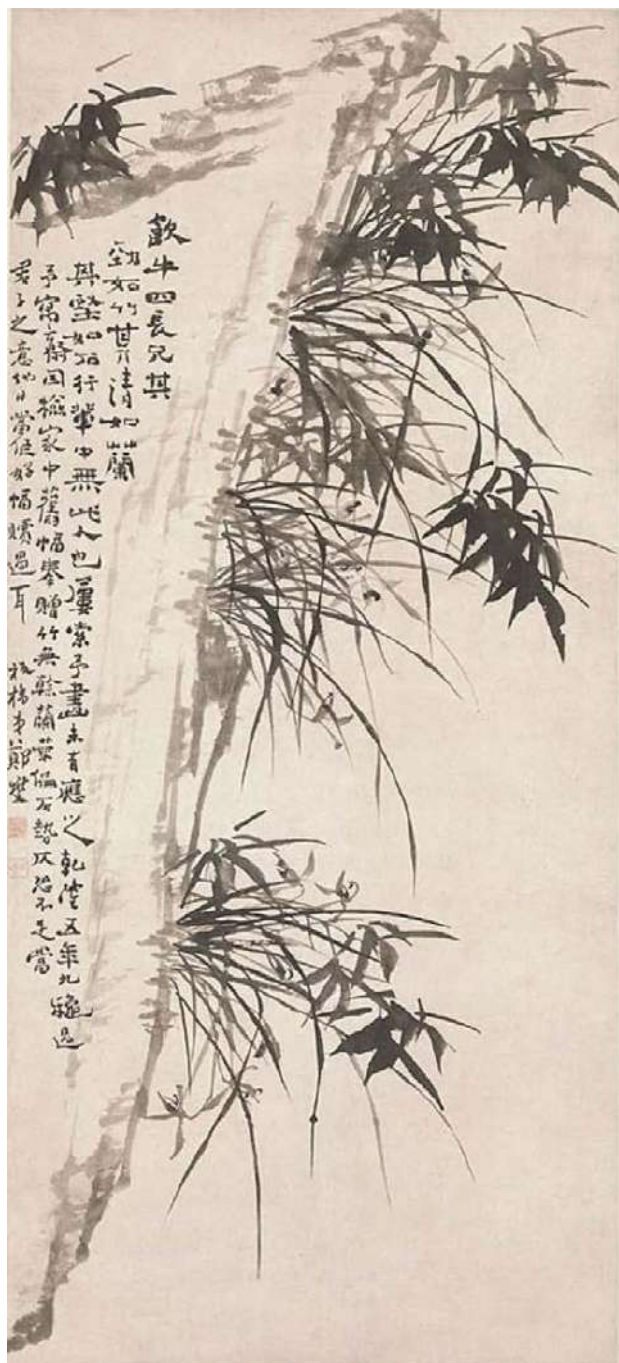 㱃牛四長兄其
勁如竹其清如蘭
其堅如石行輩中無此人也屢索予畫未有應之乾隆五年九穐過
予寓齋因檢家中舊幅奉贈竹無幹蘭葉偏石勢仄恐不足當
君子之意他日當作好幅贖過耳 板橋弟鄭燮